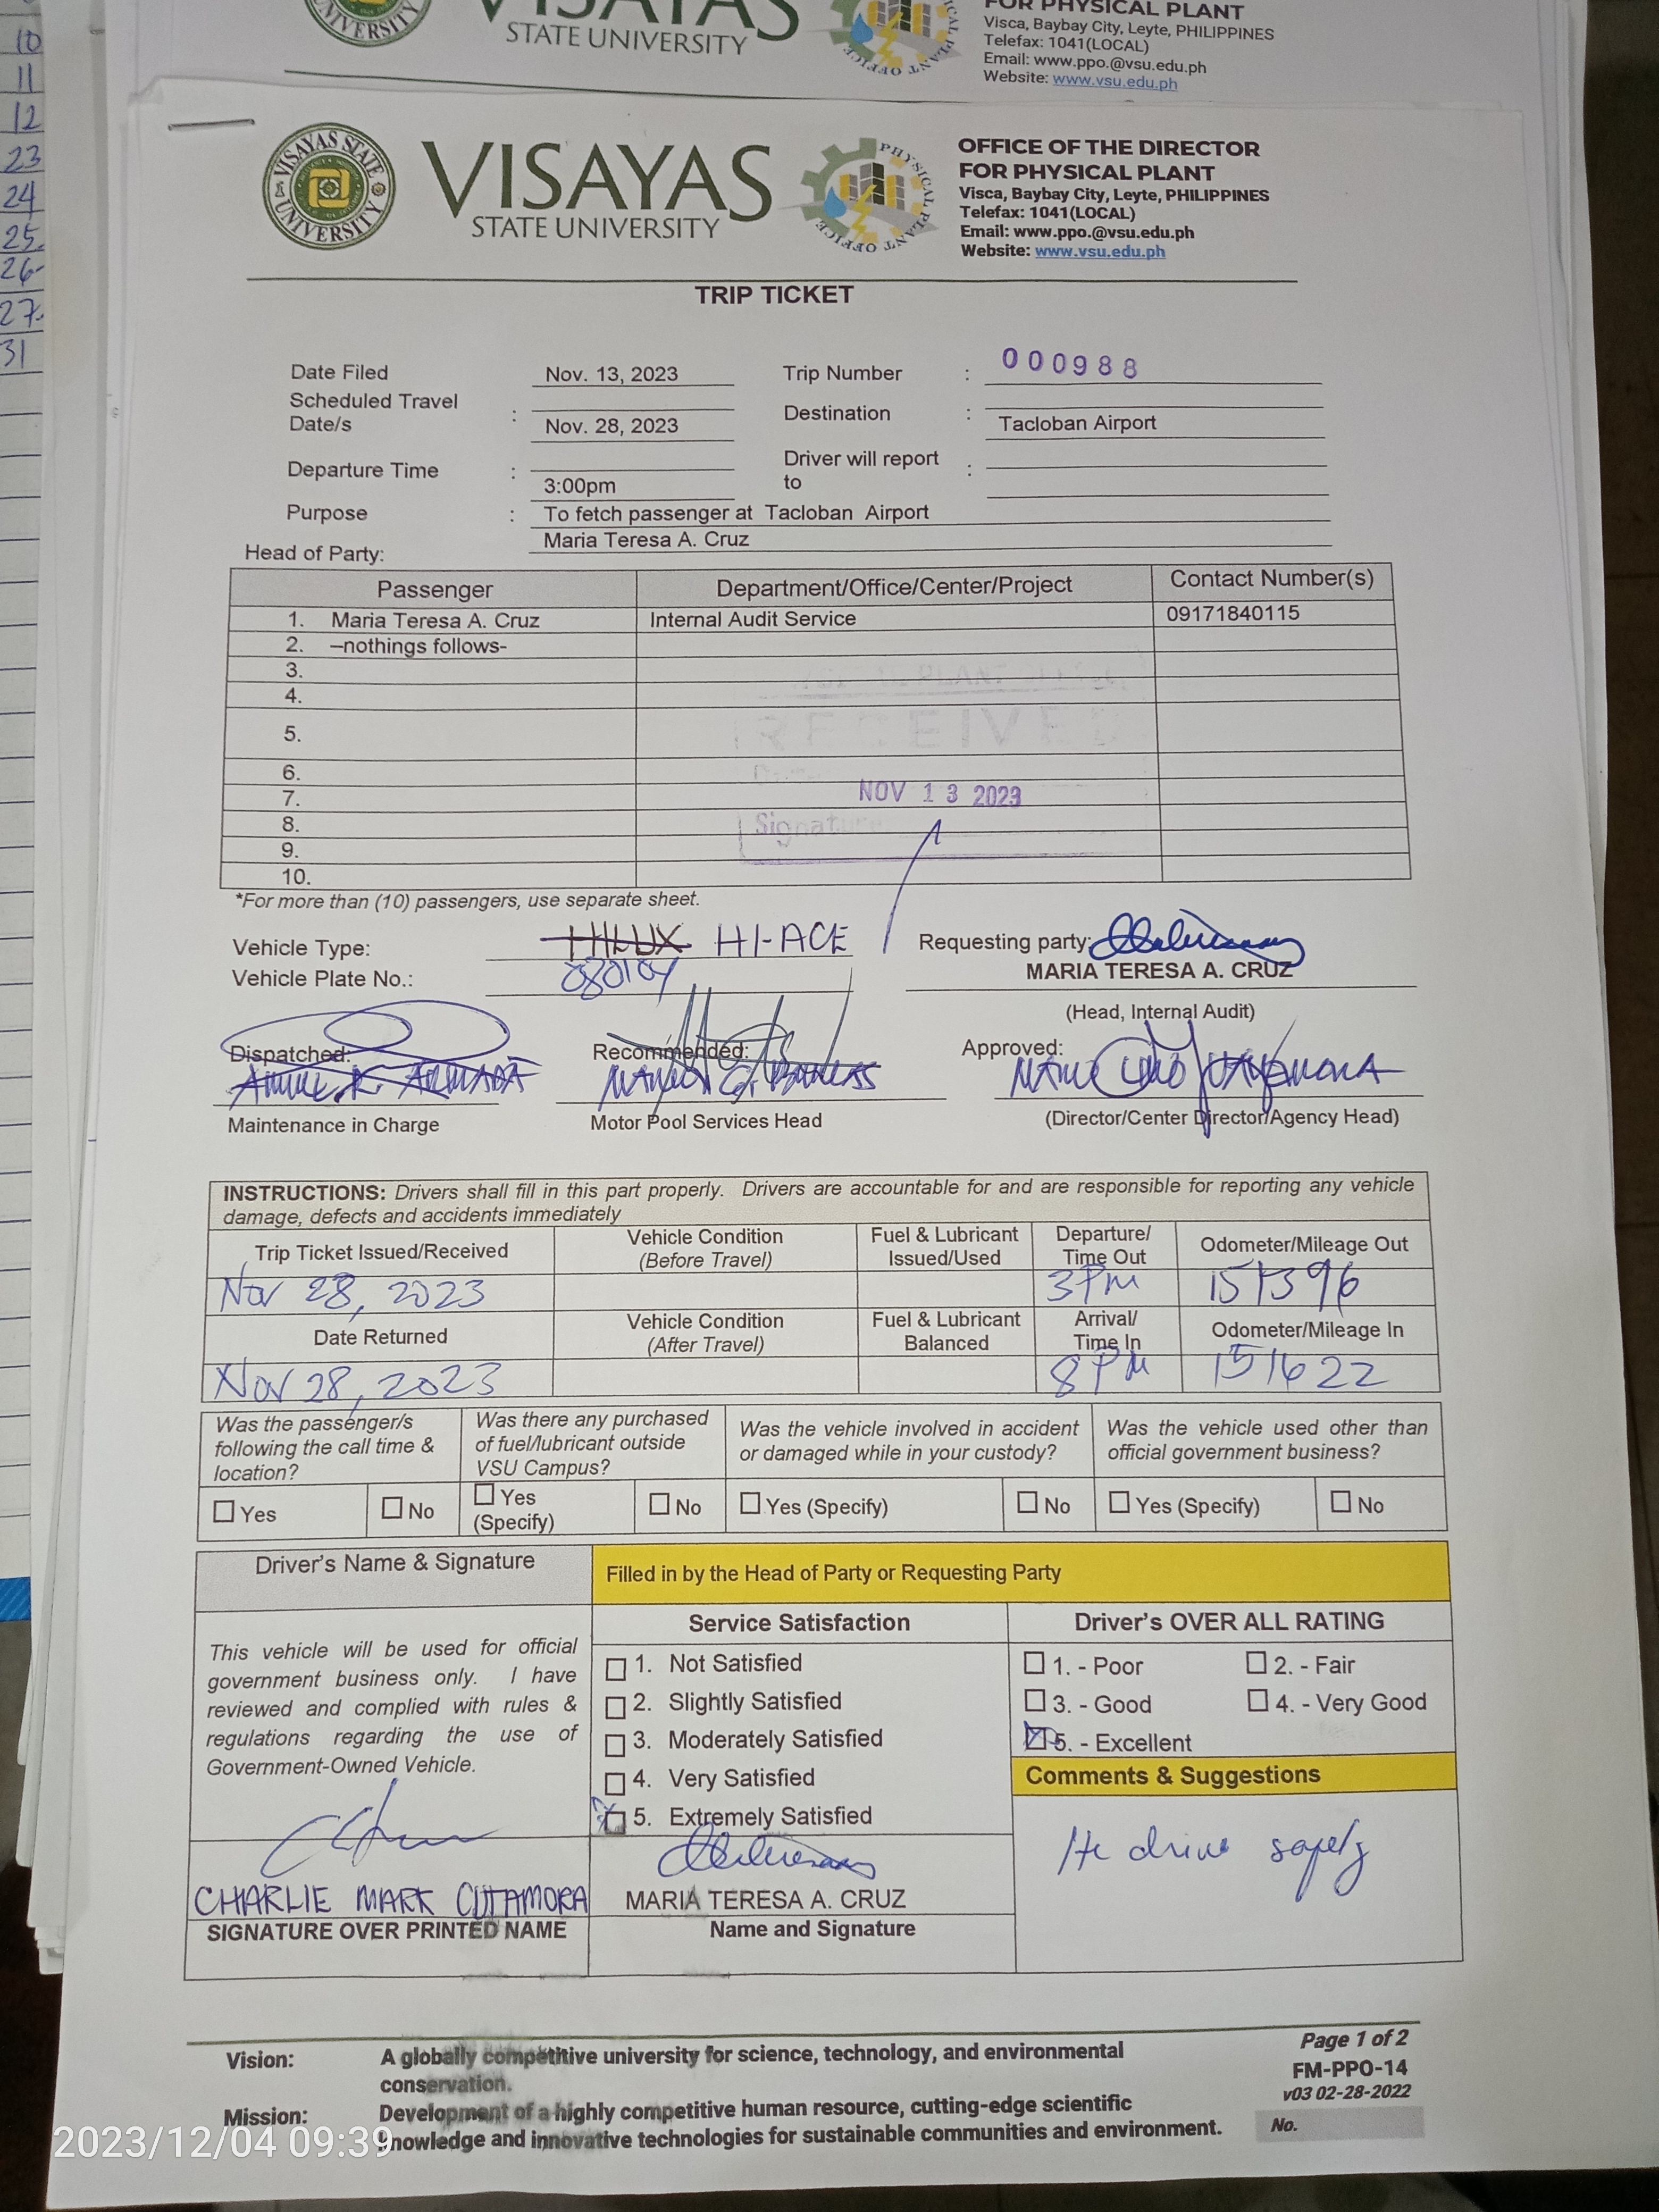 10
11
12
23
24
25.
26-
27.
31
STATE UNIVERSITY
FOR PHYSICAL PLANT
Visca, Baybay City, Leyte, PHILIPPINES
Telefax: 1041(LOCAL)
Email: www.ppo.@vsu.edu.ph
Website: www.vsu.edu.ph
VISAYAS STATE UNIVERSITY
VISAYAS
STATE UNIVERSITY
PHYSICAL PLANT OFFICE
OFFICE OF THE DIRECTOR
FOR PHYSICAL PLANT
Visca, Baybay City, Leyte, PHILIPPINES
Telefax: 1041(LOCAL)
Email: www.ppo.@vsu.edu.ph
Website: www.vsu.edu.ph
TRIP TICKET
Date Filed Nov. 13, 2023 Trip Number : 000988
Scheduled Travel Date/s : Nov. 28, 2023 Destination : Tacloban Airport
Departure Time : 3:00pm Driver will report to :
Purpose : To fetch passenger at Tacloban Airport
Head of Party: Maria Teresa A. Cruz
Passenger Department/Office/Center/Project Contact Number(s)
1. Maria Teresa A. Cruz Internal Audit Service 09171840115
2. –nothings follows-
3.
4.
5.
6.
7.
8.
9.
10.
RECEIVED
NOV 13 2023
Signature
*For more than (10) passengers, use separate sheet.
Vehicle Type: HILUX HI-ACE Requesting party:
Vehicle Plate No.: 080104 MARIA TERESA A. CRUZ
(Head, Internal Audit)
Dispatched: Recommended: Approved:
Maintenance in Charge Motor Pool Services Head (Director/Center Director/Agency Head)
INSTRUCTIONS: Drivers shall fill in this part properly. Drivers are accountable for and are responsible for reporting any vehicle
damage, defects and accidents immediately
Trip Ticket Issued/Received Vehicle Condition (Before Travel) Fuel & Lubricant Issued/Used Departure/ Time Out Odometer/Mileage Out
Nov 28, 2023 3PM 151396
Date Returned Vehicle Condition (After Travel) Fuel & Lubricant Balanced Arrival/ Time In Odometer/Mileage In
Nov 28, 2023 8PM 151622
Was the passenger/s following the call time & location? Was there any purchased of fuel/lubricant outside VSU Campus? Was the vehicle involved in accident or damaged while in your custody? Was the vehicle used other than official government business?
Yes No Yes (Specify) No Yes (Specify) No Yes (Specify) No
Driver's Name & Signature Filled in by the Head of Party or Requesting Party
Service Satisfaction Driver's OVER ALL RATING
This vehicle will be used for official
government business only. I have
reviewed and complied with rules &
regulations regarding the use of
Government-Owned Vehicle.
1. Not Satisfied
2. Slightly Satisfied
3. Moderately Satisfied
4. Very Satisfied
5. Extremely Satisfied
1. - Poor 2. - Fair
3. - Good 4. - Very Good
5. - Excellent
Comments & Suggestions
He drive safely
CHARLIE MARK CUTAMORA MARIA TERESA A. CRUZ
SIGNATURE OVER PRINTED NAME Name and Signature
Vision: A globally competitive university for science, technology, and environmental
conservation.
Mission: Development of a highly competitive human resource, cutting-edge scientific
knowledge and innovative technologies for sustainable communities and environment.
Page 1 of 2
FM-PPO-14
v03 02-28-2022
No.
2023/12/04 09:39